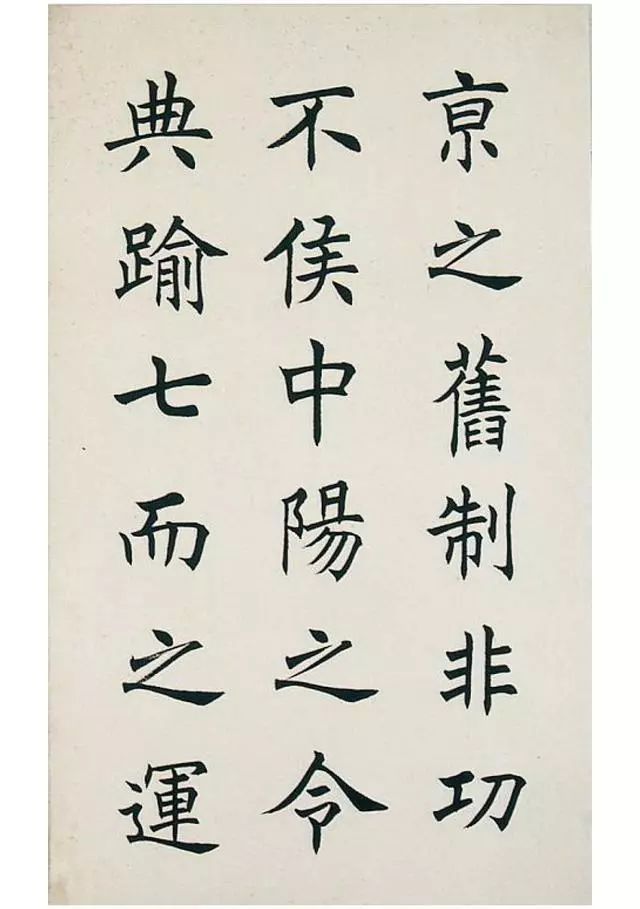 京之舊制非功
不侯中陽之令
典踰七而之運